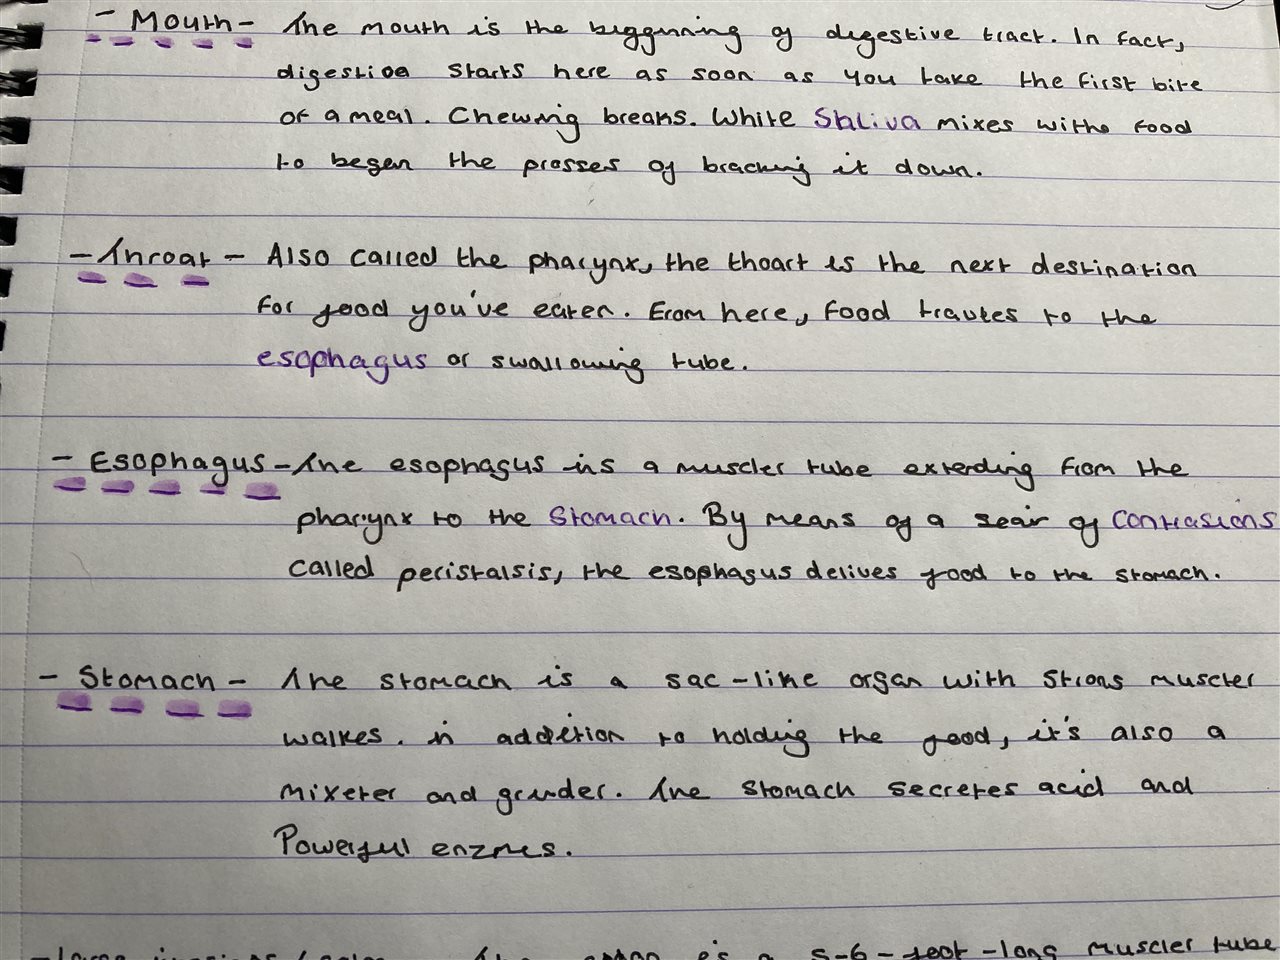 - Mouth - The mouth is the biggning of digestive tract. In fact,
digestion starts here as soon as you take the first bite
of a meal. Chewing breaks. While Saliva mixes withs food
to began the prosses of bracking it down.
- Throat - Also called the pharynx, the thoart is the next destination
for food you've eaten. From here, food travles to the
esophagus or swallowing tube.
- Esophagus - The esophagus is a muscler tube extending from the
pharynx to the Stomach. By means of a seair of Contrasions
called peristalsis, the esophagus delives food to the stomach.
- Stomach - The stomach is a sac-like organ with strong muscler
walkes. in addition to holding the food, it's also a
mixerer and grinder. The stomach secretes acid and
Powerful enzmes.
is a 5-6-foot-long muscler tube